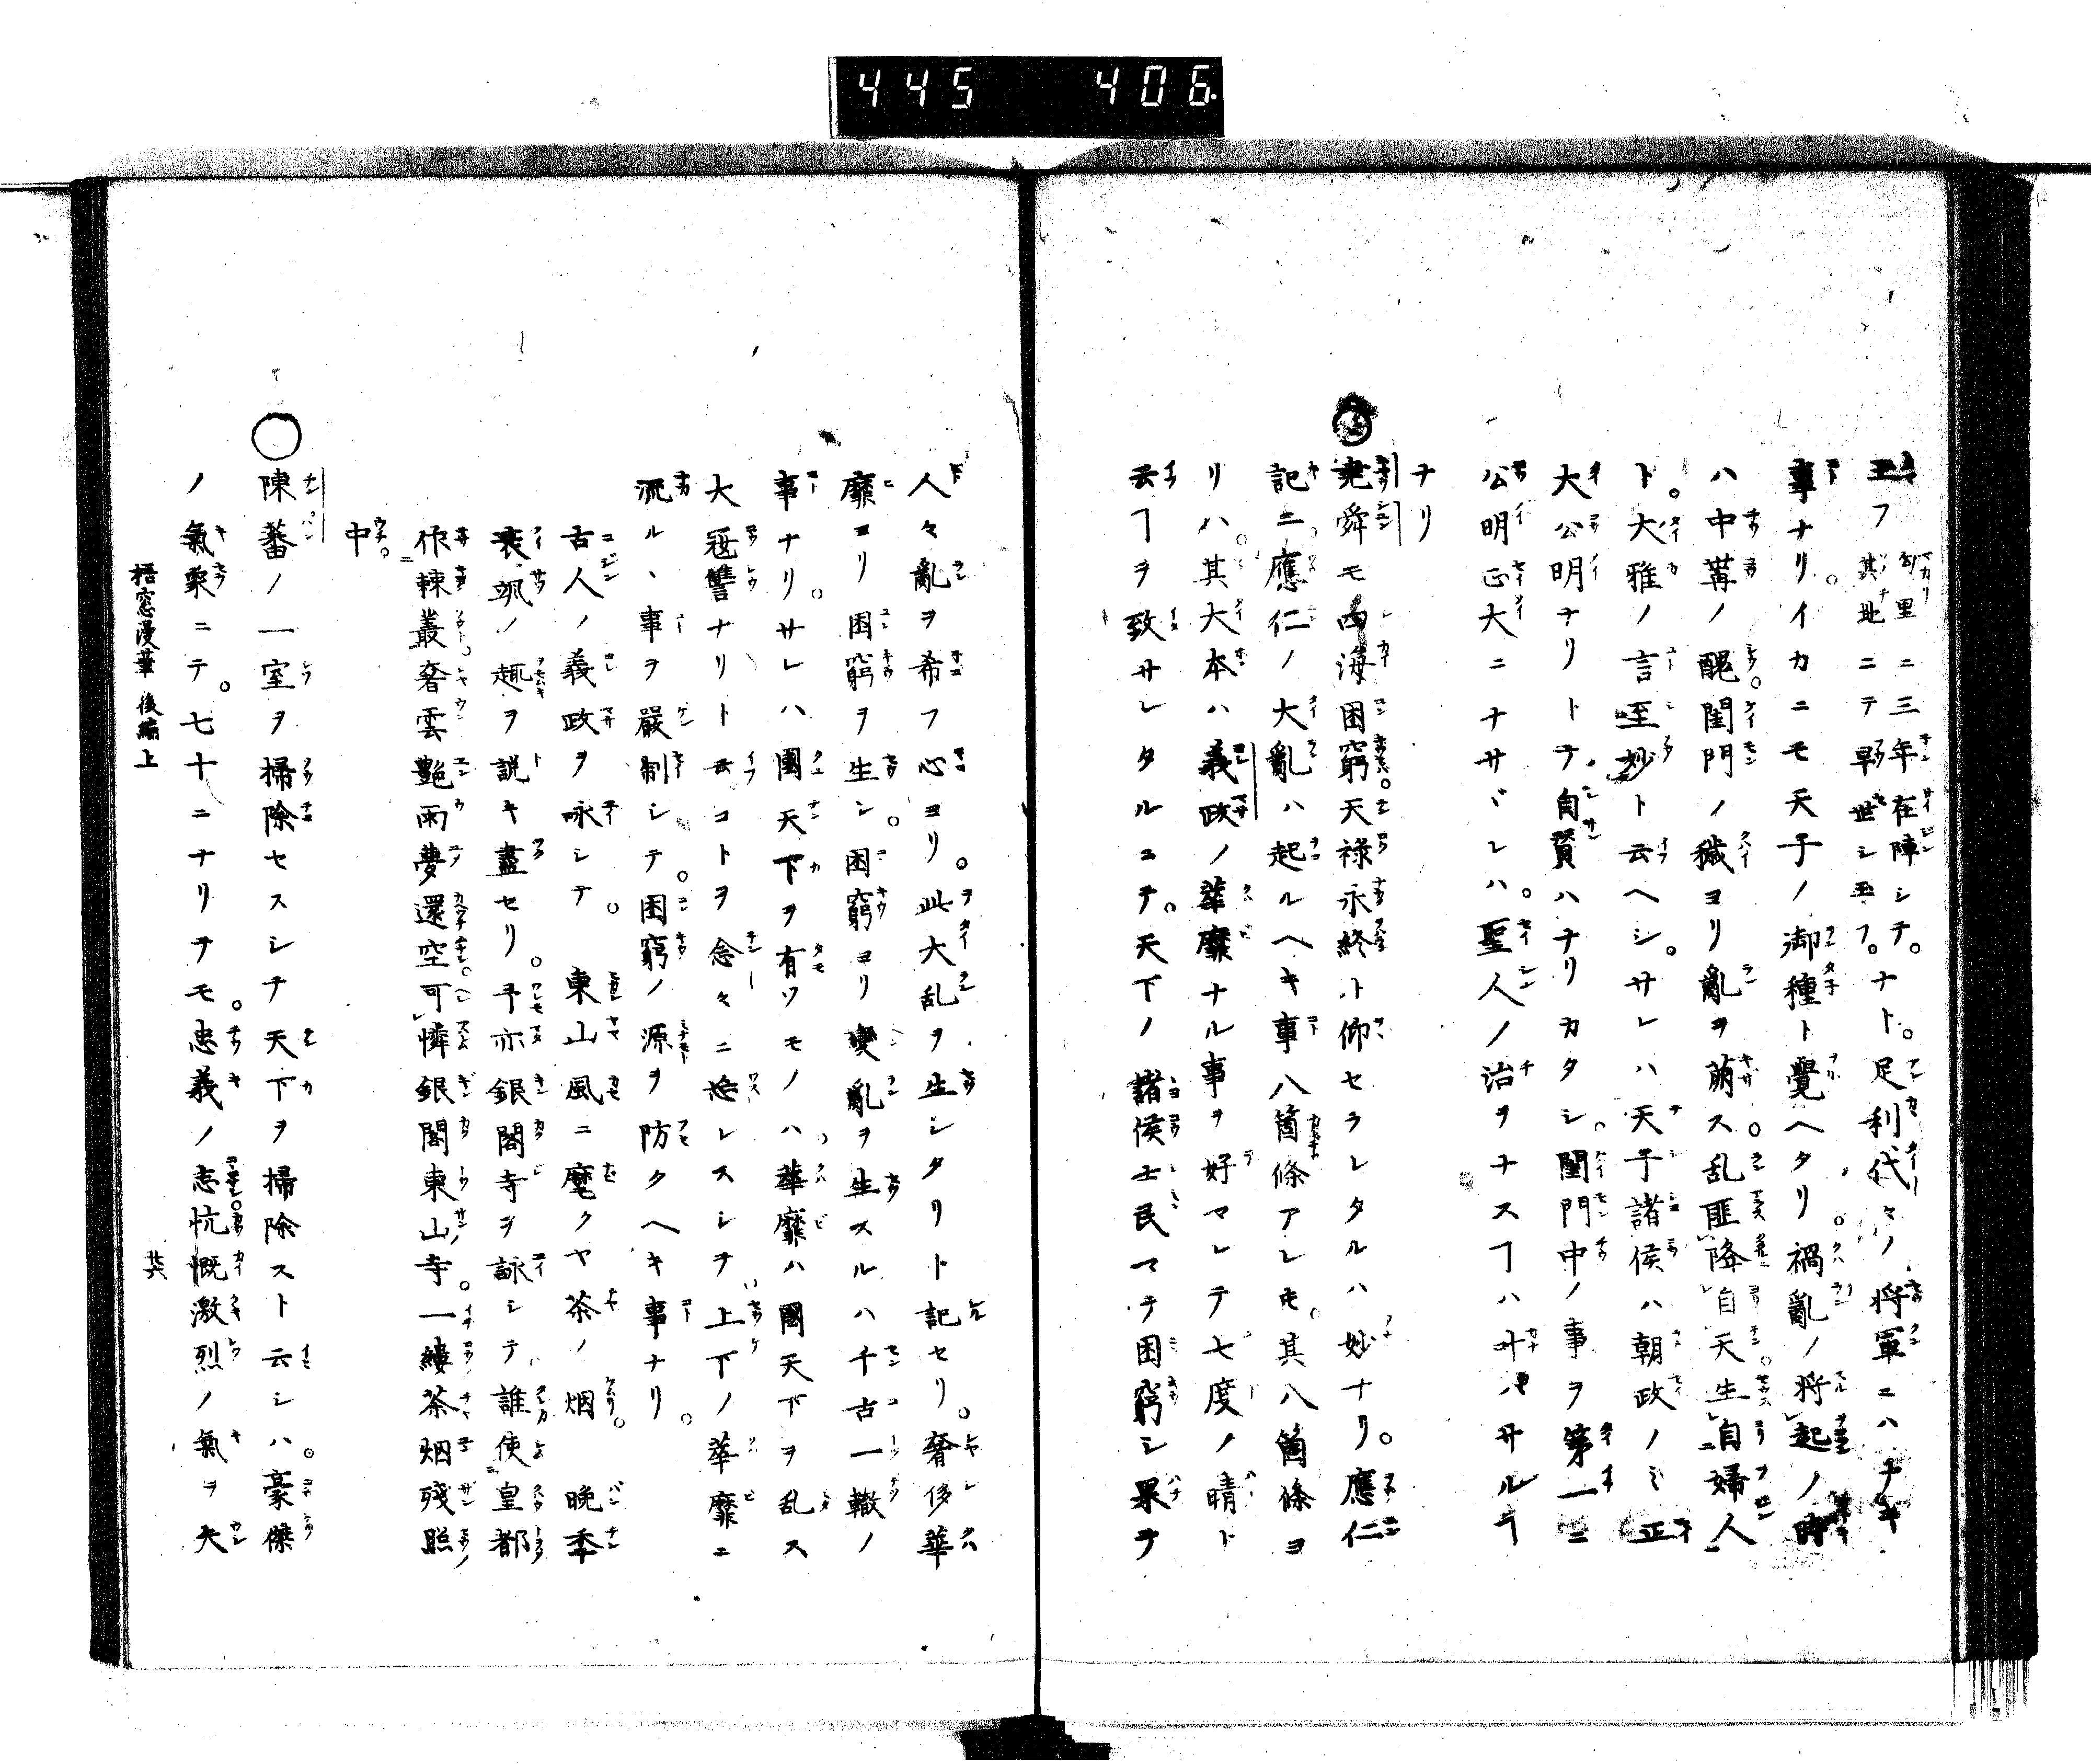 445 406
玉フ 勾里ニ三年在陣シテ。ナト。足利代々ノ将軍ニハナキ
其地ニテ早世シ玉フ。
事ナリ。イカニモ天子ノ御種ト覺ヘタリ。禍亂ノ将起ノ時
ハ中冓ノ醜。閨門ノ穢ヨリ亂ヲ萌ス。乱匪降自天。生自婦人
ト。大雅ノ言至妙ト云ヘシ。サレハ天子諸侯ハ朝政ノミ正
大公明ナリトテ自賛ハナリカタシ。閨門中ノ事ヲ第一ニ
公明正大ニナサヾレハ。聖人ノ治ヲナスヿハ叶ハサルヿ
ナリ
堯舜モ四海困窮。天祿永終ト仰セラレタルハ妙ナリ。應仁
記ニ應仁ノ大亂ハ起ルヘキ事八箇條アレモ。其八箇條ヨ
リハ。其大本ハ義政ノ華靡ナル事ヲ好マレテ七度ノ晴ト
云ヿヲ致サレタルユヱ。天下ノ諸侯士民マテ困窮シ果テ
人々亂ヲ希フ心ヨリ。此大乱ヲ生シタリト記セリ。奢侈華
靡ヨリ困窮ヲ生シ。困窮ヨリ變亂ヲ生スルハ千古一轍ノ
事ナリ。サレハ國天下ヲ有ツモノハ華靡ハ國天下ヲ乱ス
大冦讐ナリト云コトヲ念々ニ忘レスシテ上下ノ華靡ニ
流ル、事ヲ嚴制シテ。困窮ノ源ヲ防クヘキ事ナリ。
古人ノ義政ヲ咏シテ。 東山風ニ麾クヤ茶ノ烟。 晩季
衰颯ノ趣ヲ説キ盡セリ。予亦銀閣寺ヲ詠シテ 誰使皇都
作棘叢。奢雲艶雨夢還空。可憐銀閣東山寺。一縷茶烟殘照
中。
陳蕃ノ一室ヲ掃除セスシテ天下ヲ掃除スト云シハ。豪傑
ノ氣象ニテ。七十ニナリテモ。忠義ノ志。忼慨激烈ノ氣ヲ失
梧窓漫筆 後編 上
廿六